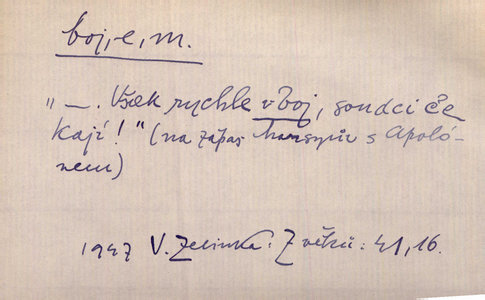 boj, e, m.
„ — . Však rychle v boj, soudci če
kají! " (na zápas Marsyův s Apoló-
nem)
1947 V. Zelinka: Z věků: 41, 16.